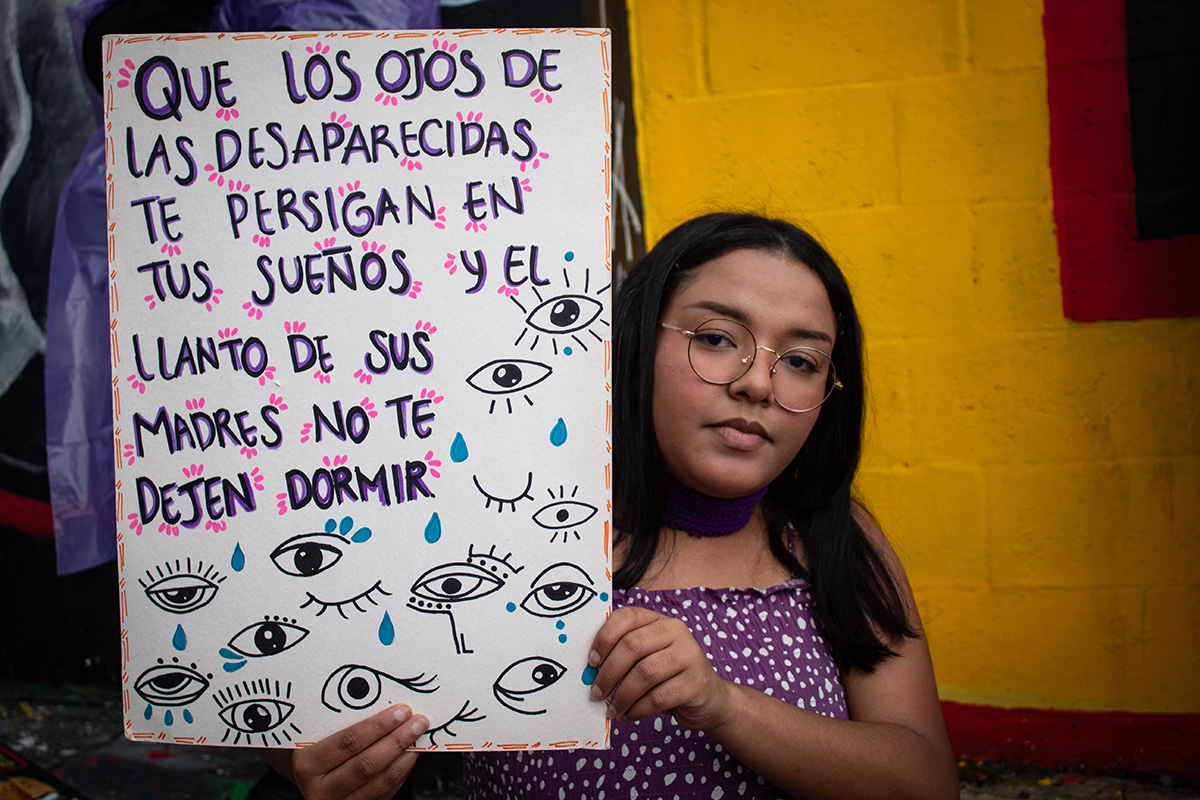 QUE LOS OJOS DE
LAS DESAPARECIDAS
TE PERSIGAN EN
TUS SUEÑOS Y EL
LLANTO DE SUS
MADRES NO TE
DEJEN DORMIR